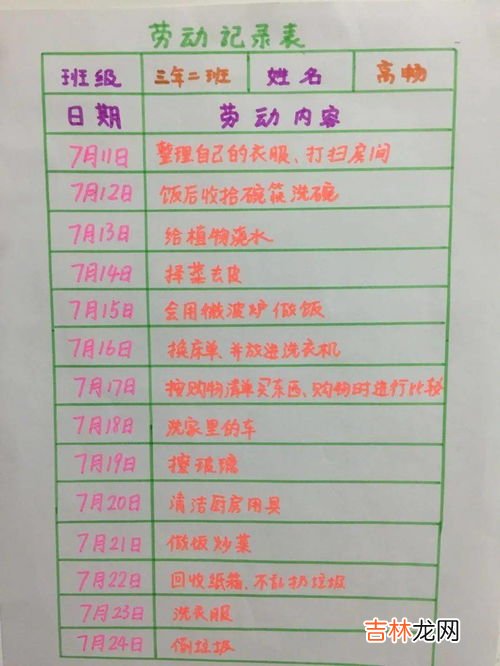 劳动记录表
班级 三年二班 姓名 高畅
日期 劳动内容
7月11日 整理自己的衣服、打扫房间
7月12日 饭后收拾碗筷洗碗
7月13日 给植物浇水
7月14日 择菜去皮
7月15日 会用微波炉做饭
7月16日 换床单、并放进洗衣机
7月17日 按购物清单买东西、购物时进行比较
7月18日 洗家里的车
7月19日 擦玻璃
7月20日 清洁厨房用具
7月21日 做饭炒菜
7月22日 回收纸箱、不乱扔垃圾
7月23日 洗衣服
7月24日 倒垃圾
吉林龙网